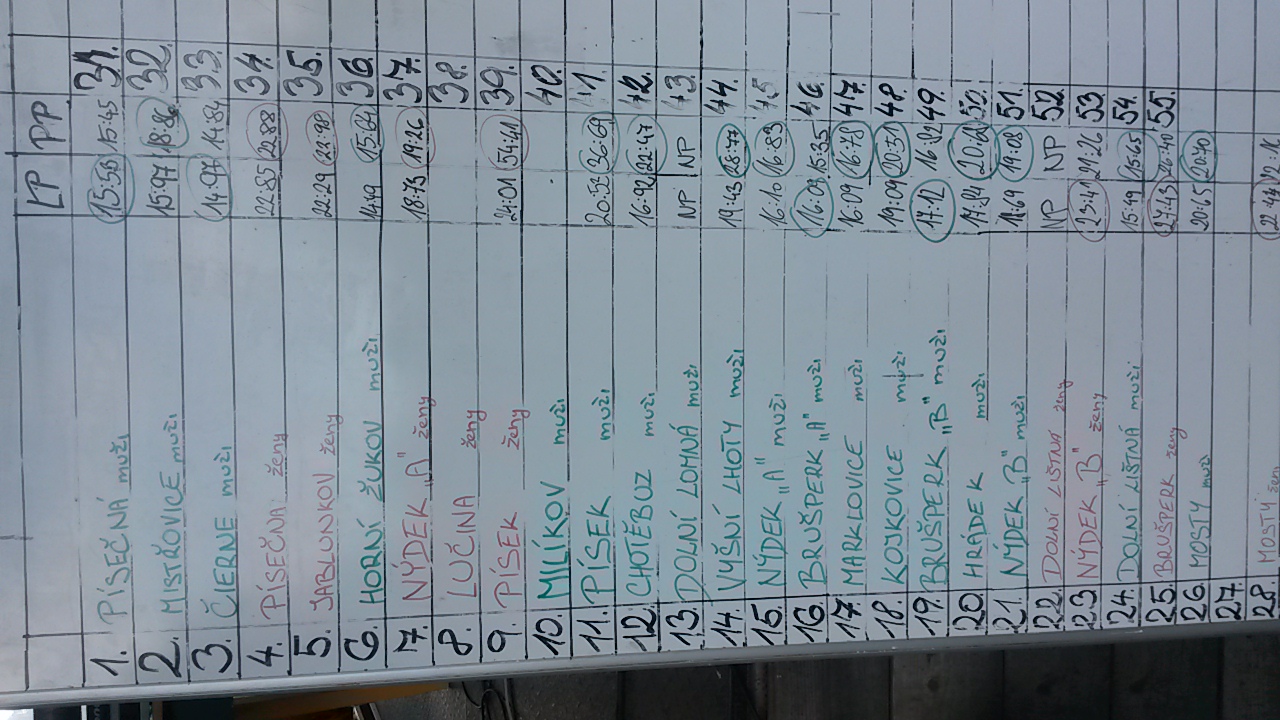 LP PP
1. PÍSEČNÁ muži 15:56 15:45 31.
2. MISTŘOVICE muži 15:97 18:86 32.
3. ČIERNE muži 14:97 14:84 33.
4. PÍSEČNÁ ženy 22:85 22:88 34.
5. JABLUNKOV ženy 22:29 22:98 35.
6. HORNÍ ŽUKOV muži 14:49 15:64 36.
7. NÝDEK „A" ženy 18:73 19:26 37.
8. LUČINA ženy 38.
9. PÍSEK ženy 24:01 54:41 39.
10. MILÍKOV muži 40.
11. PÍSEK muži 20:53 36:69 41.
12. CHOTĚBUZ muži 16:92 22:47 42.
13. DOLNÍ LOMNÁ muži NP NP 43.
14. VYŠNÍ LHOTY muži 19:43 28:77 44.
15. NÝDEK „A" muži 16:10 16:83 45.
16. BRUŠPERK „A" muži 16:09 15:35 46.
17. MARKLOVICE muži 16:09 16:78 47.
18. KOJKOVICE muži 19:09 20:51 48.
19. BRUŠPERK „B" muži 17:12 16:82 49.
20. HRÁDEK muži 19:84 20:62 50.
21. NÝDEK „B" muži 19:08 51.
22. DOLNÍ LIŠTNÁ ženy NP NP 52.
23. NÝDEK „B" ženy 23:41 21:26 53
24. DOLNÍ LIŠTNÁ muži 15:49 15:65 54.
25. BRUŠPERK ženy 27:43 26:40 55.
26. MOSTY muži 20:65 20:70
27.
28. MOSTY ženy 22:44